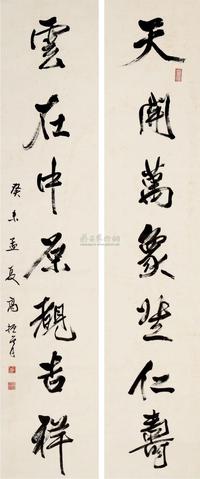 天開萬象仁壽
雲在中原吉祥
癸未孟夏高振霄